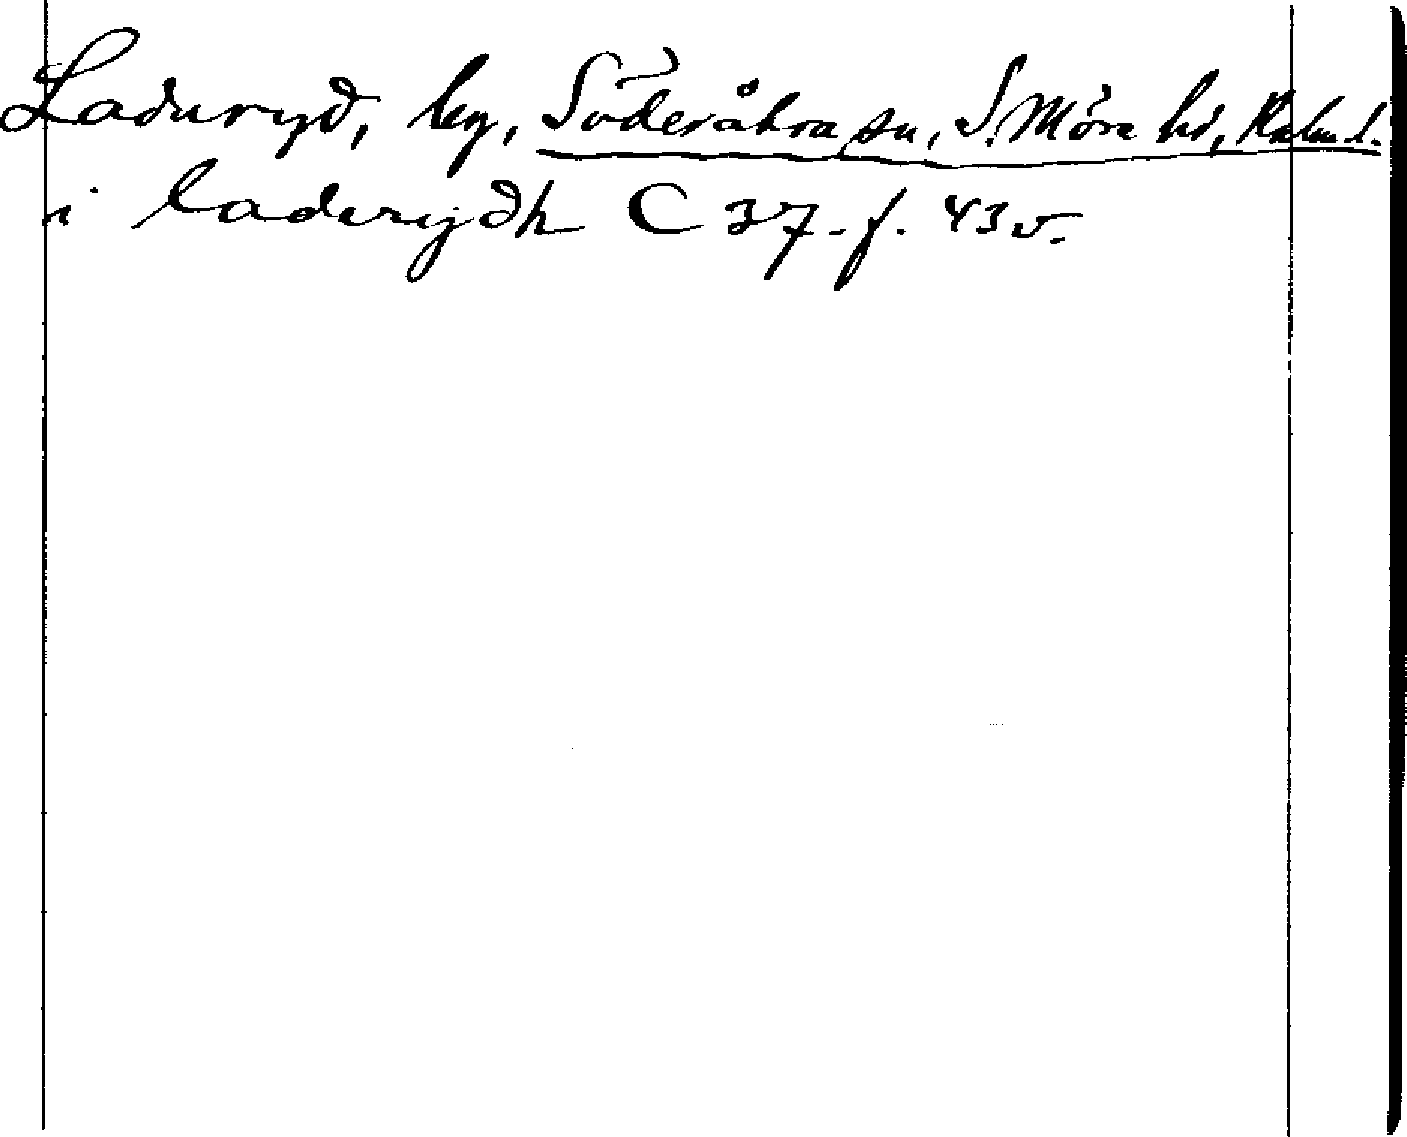 Laduryd, by, Söderåkra sn, S. Möre hd, Kalm. l.
i laderydh C 37. f. 43v.